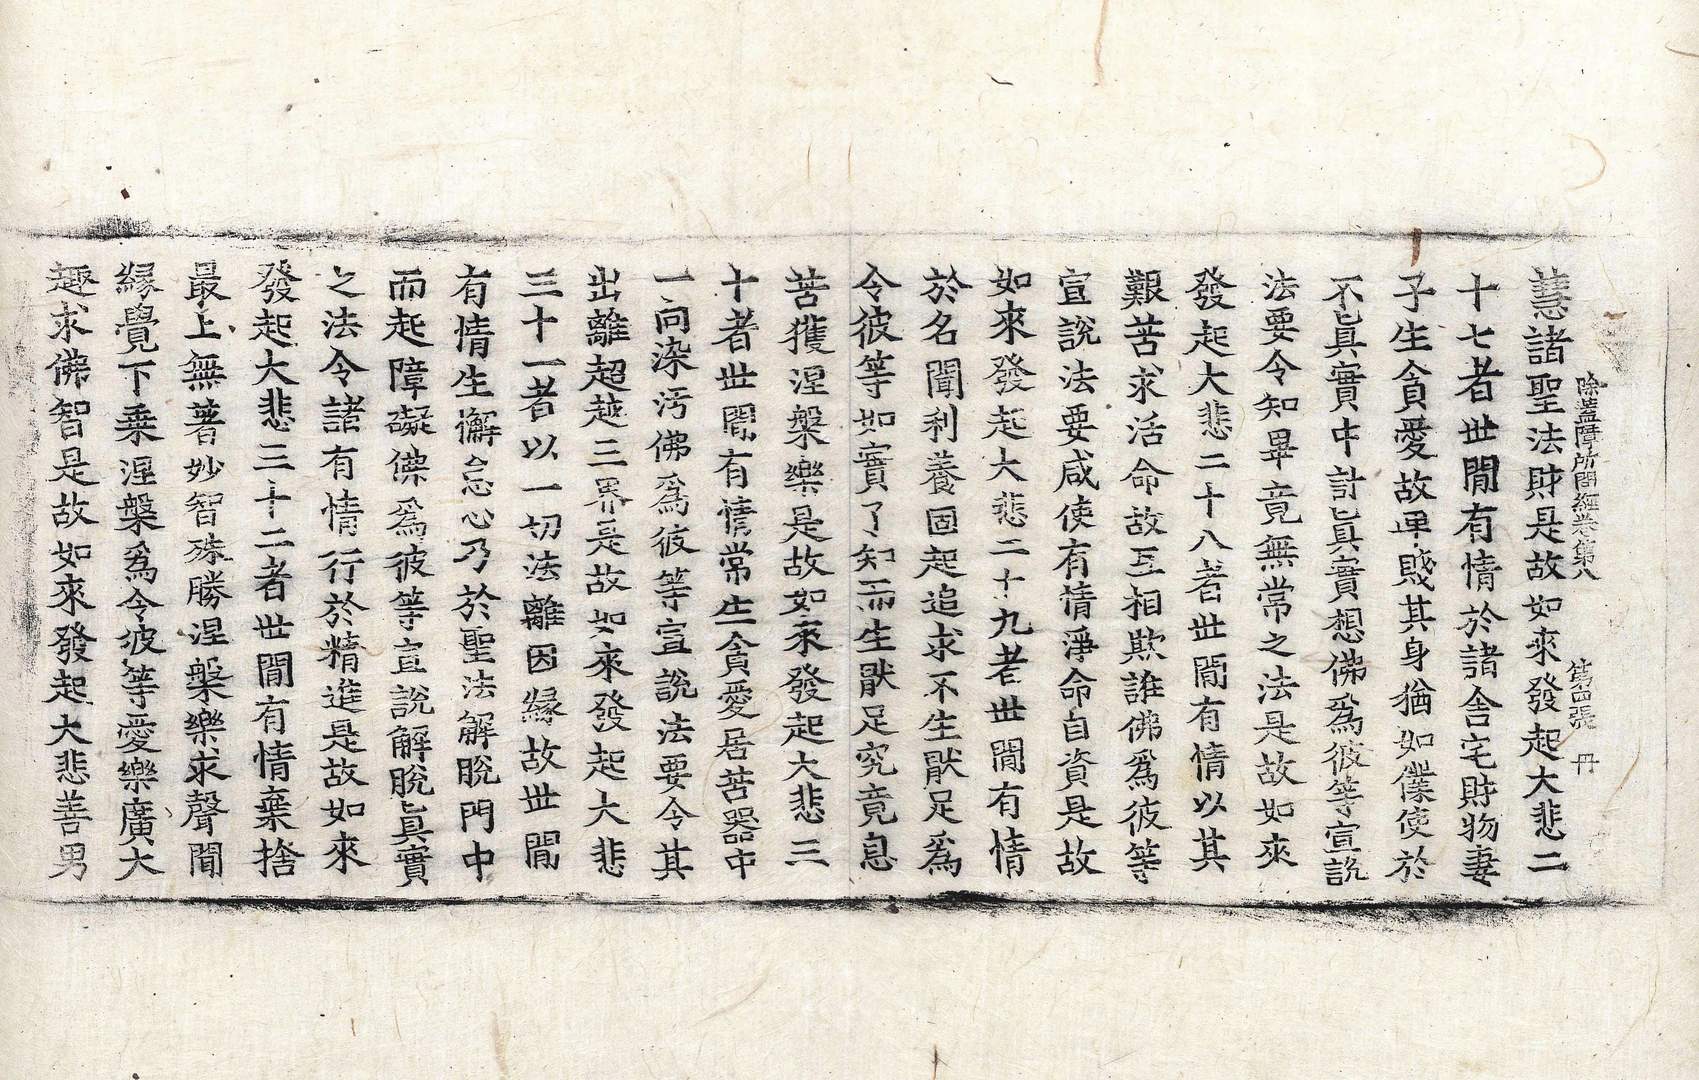 慧諸聖法財是故如來發起大悲二
除蓋障所問經卷第八 第四張 丹
十七者世間有情於諸舍宅財物妻
子生貪愛故卑賤其身猶如僕使於
不眞實中計眞實想佛爲彼等宣說
法要令知畢竟無常之法是故如來
發起大悲二十八者世間有情以其
艱苦求活命故互相欺誑佛爲彼等
宣說法要咸使有情淨命自資是故
如來發起大悲二十九者世間有情
於名聞利養固起追求不生猒足爲
令彼等如實了知而生猒足究竟息
苦獲涅槃樂是故如來發起大悲三
十者世間有情常生貪愛居苦器中
一向染汚佛爲彼等宣說法要令其
出離超越三界是故如來發起大悲
三十一者以一切法離因縁故世間
有情生懈怠心乃於聖法解脫門中
而起障礙佛爲彼等宣說解脫眞實
之法令諸有情行於精進是故如來
發起大悲三十二者世間有情棄捨
最上無著妙智殊勝涅槃樂求聲聞
縁覺下乗涅槃爲令彼等愛樂廣大
趣求佛智是故如來發起大悲善男